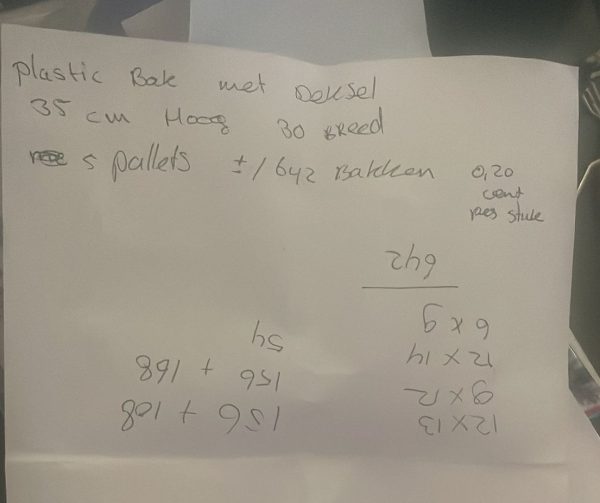 Plastic Bak met Deksel
35 cm Hoog 30 Breed
5 pallets ±/ 642 Bakken 0,20
cent
per stuk
12 x 13 156 + 108
9 x 12 156 + 168
12 x 14 54
6 x 9
642